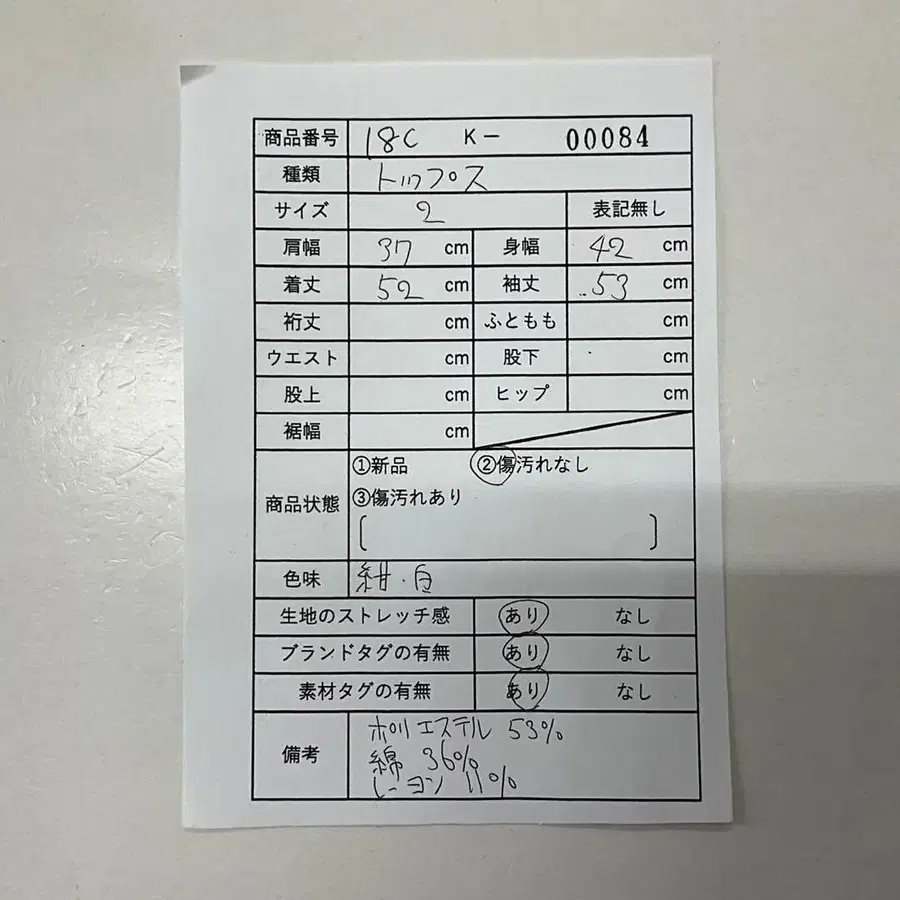 商品番号 18C K- 00084
種類 トップス
サイズ 2 表記無し
肩幅 37 cm 身幅 42 cm
着丈 52 cm 袖丈 53 cm
裄丈 cm ふともも cm
ウエスト cm 股下 cm
股上 cm ヒップ cm
裾幅 cm
①新品 ②傷汚れなし
商品状態 ③傷汚れあり
[ ]
色味 紺・白
生地のストレッチ感 あり なし
ブランドタグの有無 あり なし
素材タグの有無 あり なし
備考 ポリエステル 53%
綿 36%
レーヨン 11%